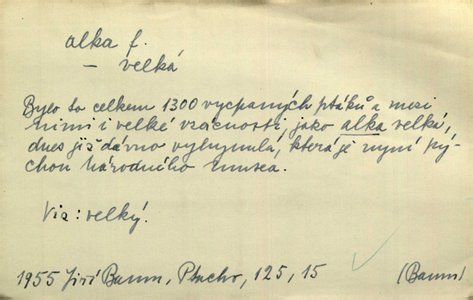 alka f.
– velká
Bylo to celkem 1300 vycpaných ptáků a mezi
nimi i velké vzácnosti, jako alka velká,
dnes již dávno vyhynulá, která je nyní pý-
chou Národního musea.
Viz: velký.
1955 Jiří Baum, Ptacho, 125, 15 (Baum)